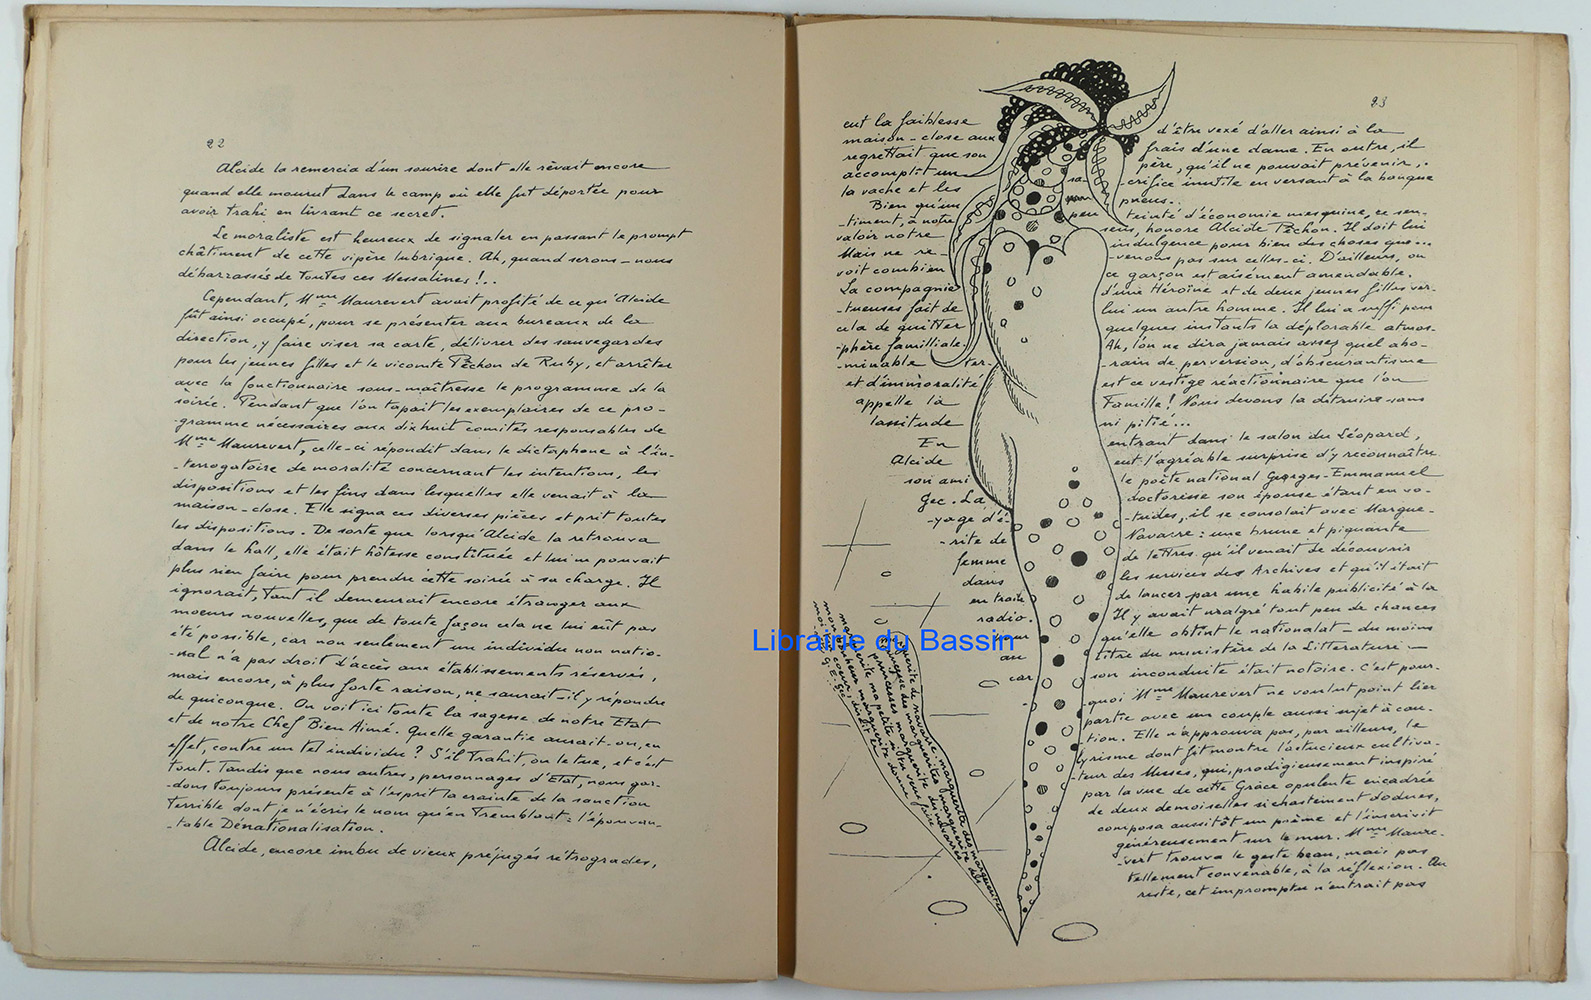 22
Alcide la remercia d'un sourire dont elle rêvait encore
quand elle mourut dans le camp où elle fut déportée pour
avoir trahi en livrant ce secret.
Le moraliste est heureux de signaler en passant le prompt
châtiment de cette vipère lubrique. Ah, quand serons-nous
débarrassés de toutes ces Messalines !..
Cependant, Mme Maurevert avait profité de ce qu'Alcide
fût ainsi occupé, pour se présenter aux bureaux de la
direction, y faire viser sa carte, délivrer des sauvegardes
pour les jeunes filles et le vicomte Péchon de Ruby, et arrêter
avec la fonctionnaire sous-maîtresse le programme de la
soirée. Pendant que l'on tapait les exemplaires de ce pro-
-gramme nécessaires aux dixhuit comités responsables de
Mme Maurevert, celle-ci répondit dans le dictaphone à l'in-
-terrogatoire de moralité concernant les intentions, les
dispositions et les fins dans lesquelles elle venait à la
maison-close. Elle signa ces diverses pièces et prit toutes
les dispositions. De sorte que lorsqu'Alcide la retrouva
dans le hall, elle était hôtesse constituée et lui ne pouvait
plus rien faire pour prendre cette soirée à sa charge. Il
ignorait, tant il demeurait encore étranger aux
moeurs nouvelles, que de toute façon cela ne lui eût pas
été possible, car non seulement un individu non natio-
-nal n'a pas droit d'accès aux établissements réservés,
mais encore, à plus forte raison, ne saurait-il y répondre
de quiconque. On voit ici toute la sagesse de notre Etat
et de notre Chef Bien Aimé. Quelle garantie aurait-on, en
effet, contre un tel individu ? S'il trahit, on le tue, et c'est
tout. Tandis que nous autres, personnages d'Etat, nous gar-
-dons toujours présente à l'esprit la crainte de la sanction
terrible dont je n'écris le nom qu'en tremblant : l'épouvan-
-table Dénationalisation.
Alcide, encore imbu de vieux préjugés rétrogrades,
23
eut la faiblesse d'être vexé d'aller ainsi à la
maison-close aux frais d'une dame. En outre, il
regrettait que son père, qu'il ne pouvait prévenir,
accomplît un sa- -crifice inutile en versant à la banque
la vache et les pneus.
Bien qu'un peu teinté d'économie mesquine, ce sen-
-timent, à notre sens, honore Alcide Péchon. Il doit lui
valoir notre indulgence pour bien des choses que...
Mais ne re- -venons pas sur celles-ci. D'ailleurs, on
voit combien ce garçon est aisément amendable.
La compagnie d'une Héroïne et de deux jeunes filles ver-
-tueuses fait de lui un autre homme. Il lui a suffi pour
cela de quitter quelques instants la déplorable atmos-
-phère familliale. Ah, l'on ne dira jamais assez quel abo-
-minable ter- -rain de perversion, d'obscurantisme
et d'immoralité est ce vestige réactionnaire que l'on
appelle la Famille ! Nous devons la détruire sans
lassitude ni pitié...
En entrant dans le salon du Léopard,
Alcide eut l'agréable surprise d'y reconnaître
son ami le poète national Georges-Emmanuel
Gec. La doctoresse son épouse étant en vo-
-yage d'é- -tudes, il se consolait avec Margue-
-rite de Navarre : une brune et piquante
femme de lettres qu'il venait de découvrir
dans les services des Archives et qu'il était
en train de lancer par une habile publicité à la
radio. Il y avait malgré tout peu de chances
pour qu'elle obtînt le nationalat - du moins
au titre du ministère de la Littérature -
car son inconduite était notoire. C'est pour-
-quoi Mme Maurevert ne voulut point lier
partie avec un couple aussi sujet à cau-
-tion. Elle n'approuva pas, par ailleurs, le
lyrisme dont fit montre l'astucieux cultiva-
-teur des Muses, qui, prodigieusement inspiré
par la vue de cette Grâce opulente encadrée
de deux demoiselles si chastement dodues,
composa aussitôt un poème et l'inscrivit
généreusement sur le mur. Mme Maure-
-vert trouva le geste beau, mais pas
tellement convenable, à la réflexion. Au
reste, cet impromptu n'entrait pas
Librairie du Bassin